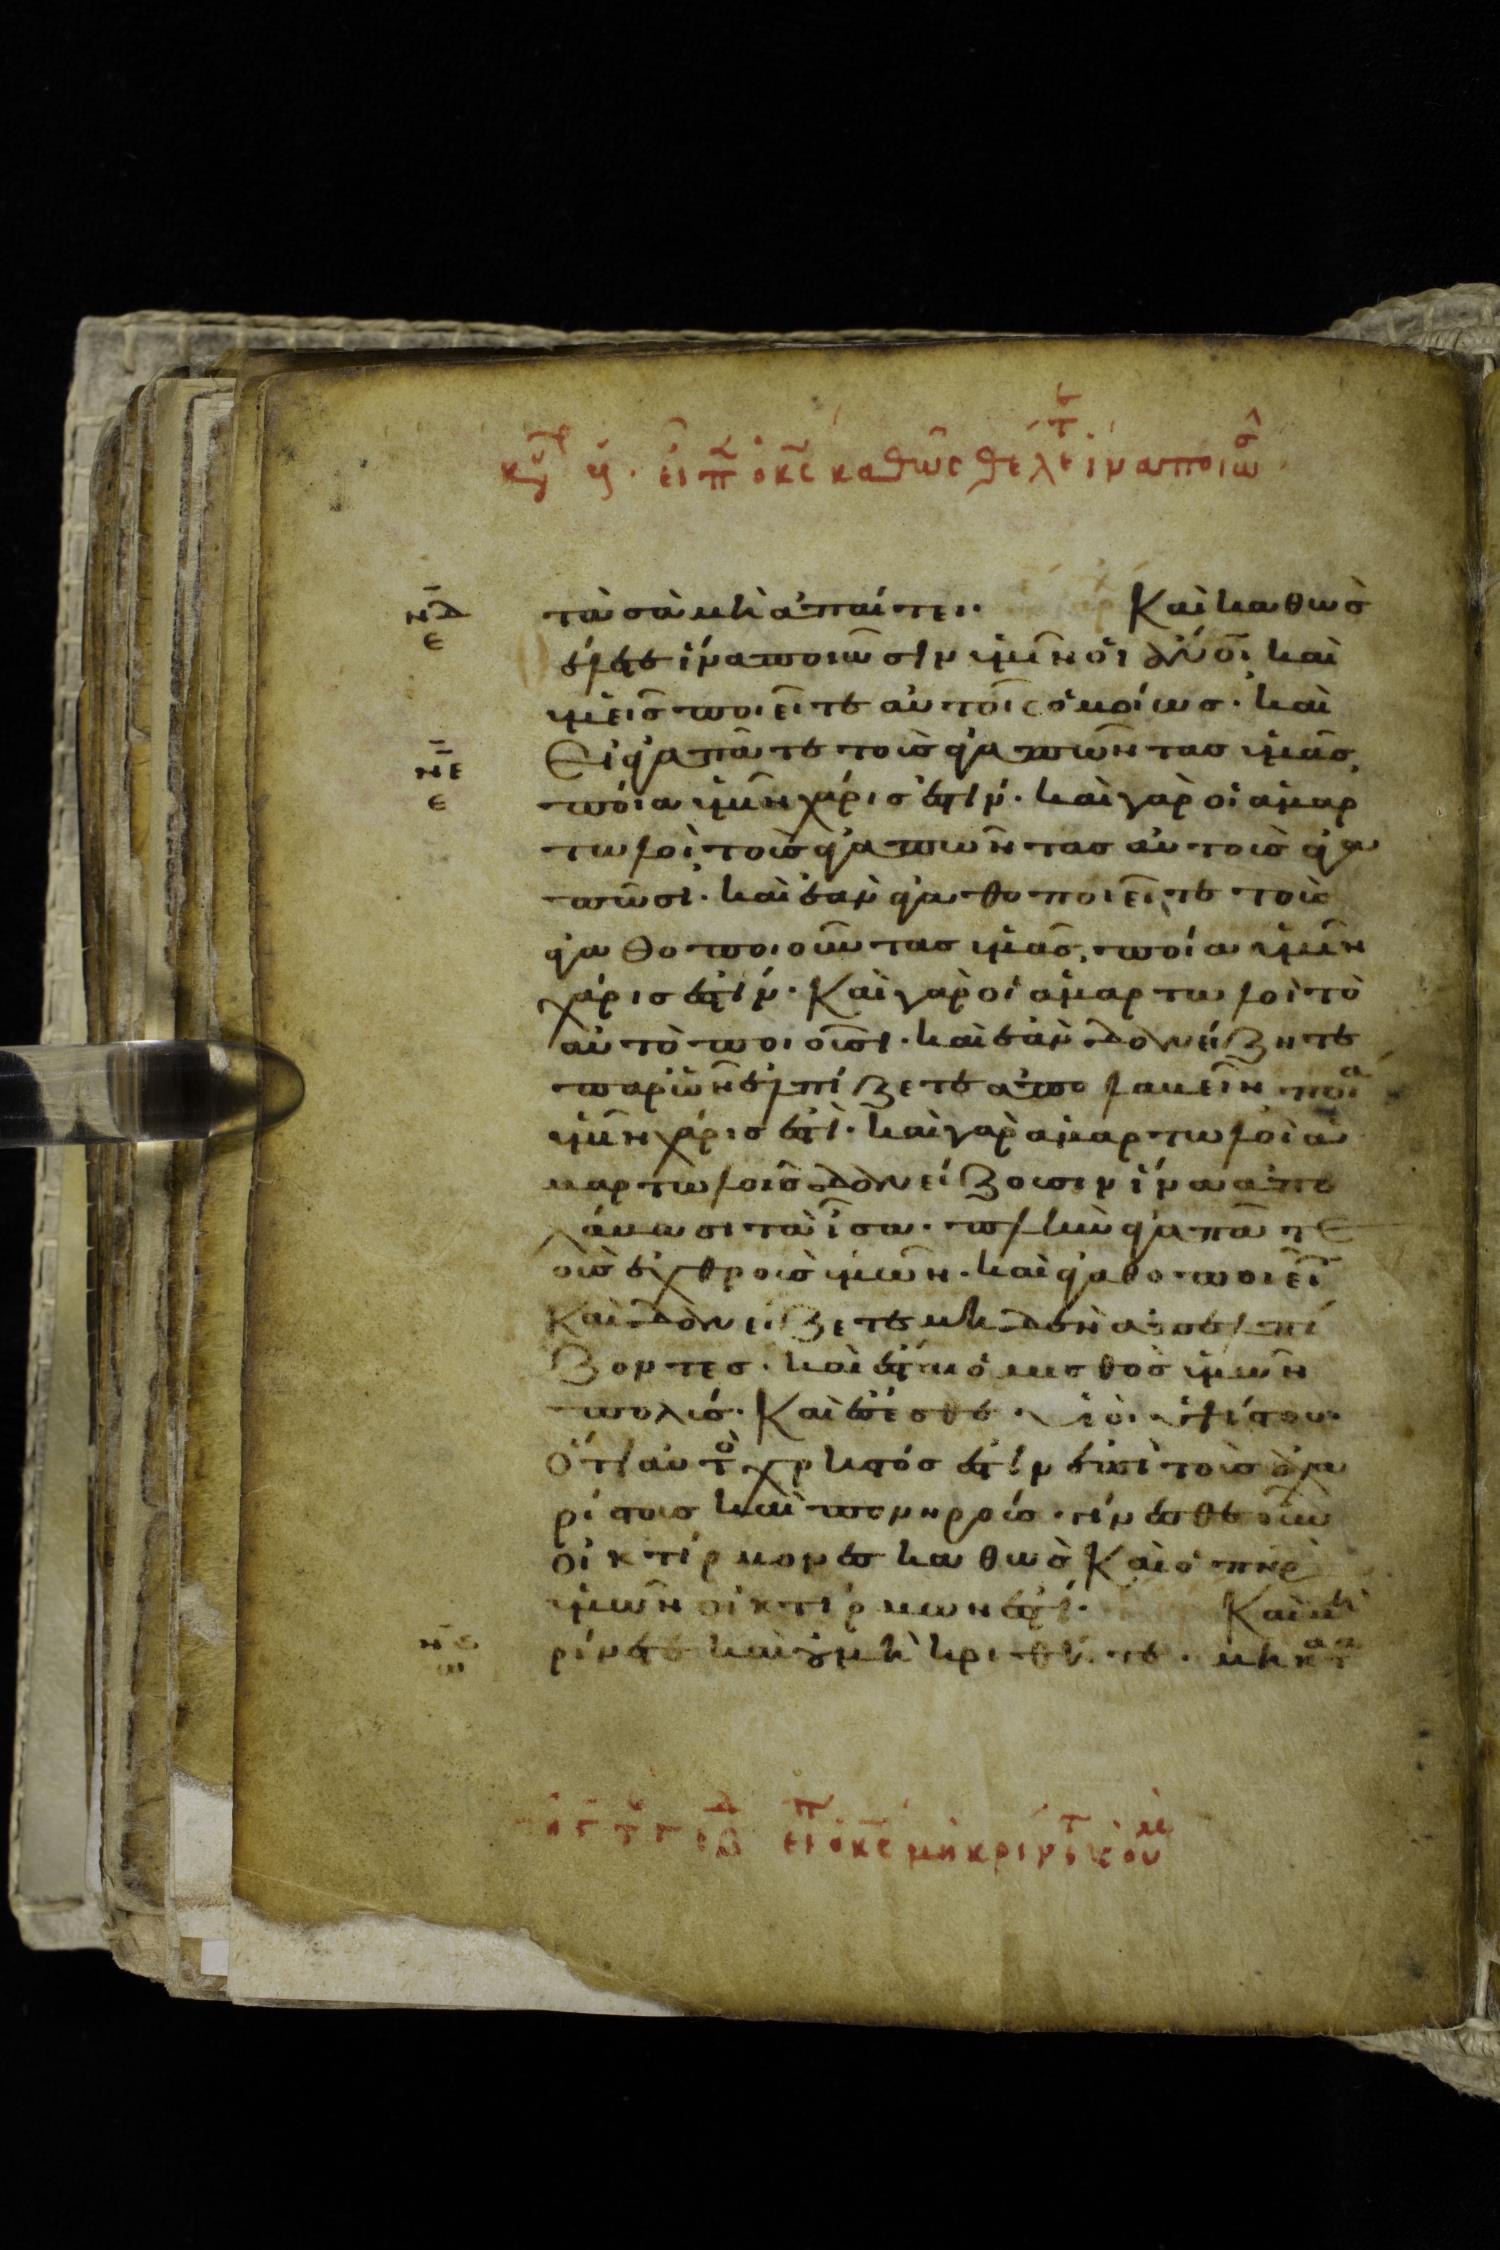 εἶπ ὁ κς καθῶς θέλετ ἵνα ποιῶσ
ν̄δ
ε
τὰ σὰ μὴ ἀπαίτει. Καὶ καθὼσ
ἵνα ποιῶσιν ὑμῖν οἱ ἀν̅ο̅ι̅ καὶ
ὑμεῖσ ποιεῖτε αὐτοῖς ὁμοίωσ. καὶ
ν̄ε
ε
Εἰ ἀγαπᾶτε τοὺσ ἀγαπῶντασ ὑμᾶσ,
ποία ὑμῖν χάρισ ἐστίν. καὶ γὰρ οἱ ἁμαρ
τωλοὶ τοὺσ ἀγαπῶντασ αὐτοὺσ ἀγα
πῶσι. καὶ ἐὰν ἀγαθοποιεῖτε τοὺσ
ἀγαθοποιοῦντασ ὑμᾶσ, ποία ὑμῖν
χάρισ ἐστίν. Καὶ γὰρ οἱ ἁμαρτωλοὶ τὸ
αὐτὸ ποιοῦσι. καὶ ἐὰν δανείζητε
παρ ὧν ἐλπίζετε ἀπολαβεῖν ποία
ὑμῖν χάρισ ἐστί. καὶ γὰρ ἁμαρτωλοὶ ἁ
μαρτωλοῖσ δανείζουσιν ἵνα ἀπο
λάβωσι τὰ ἴσα. πλὴν ἀγαπᾶτε
οὺσ ἐχθροὺσ ὑμῶν. καὶ ἀγαθοποιεῖ
Καὶ δανείζετε μηδὲν ἀπελπί
ζοντεσ. καὶ ἔσται ὁ μισθὸσ ὑμῶν
πολύσ. Καὶ ἔσεσθε υἱοὶ ὑψίστου.
Ὅτι αὐτὸ χρηστόσ ἐστὶν ἐπὶ τοὺσ ἀχα
ρίστουσ καὶ πονηρούσ. γίνεσθε οὖν
οἰκτίρμονεσ καθὼσ Καὶ ὁ π̅η̅ρ̅
ὑμῶν οἰκτίρμων ἐστί. Καὶ μὴ
ν̄ϛ
κατ
ρίνετε καὶ οὐ μὴ κριθῆτε. μὴ κατα
εἶπ ὁ κς μὴ κρίνετ κ οὐ μὴ